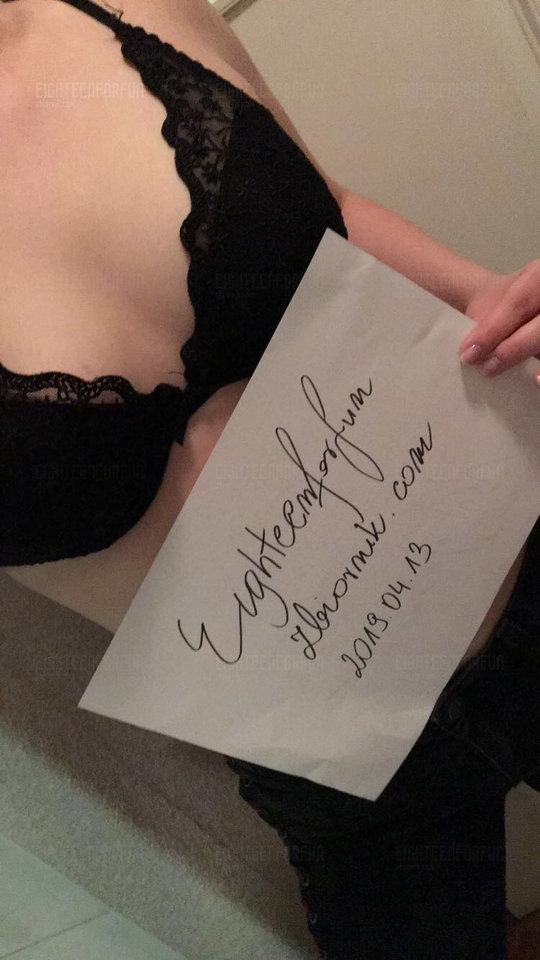 Eighteenforfun
Zbiornik.com
2019 04.13
EIGHTEENFORFUN